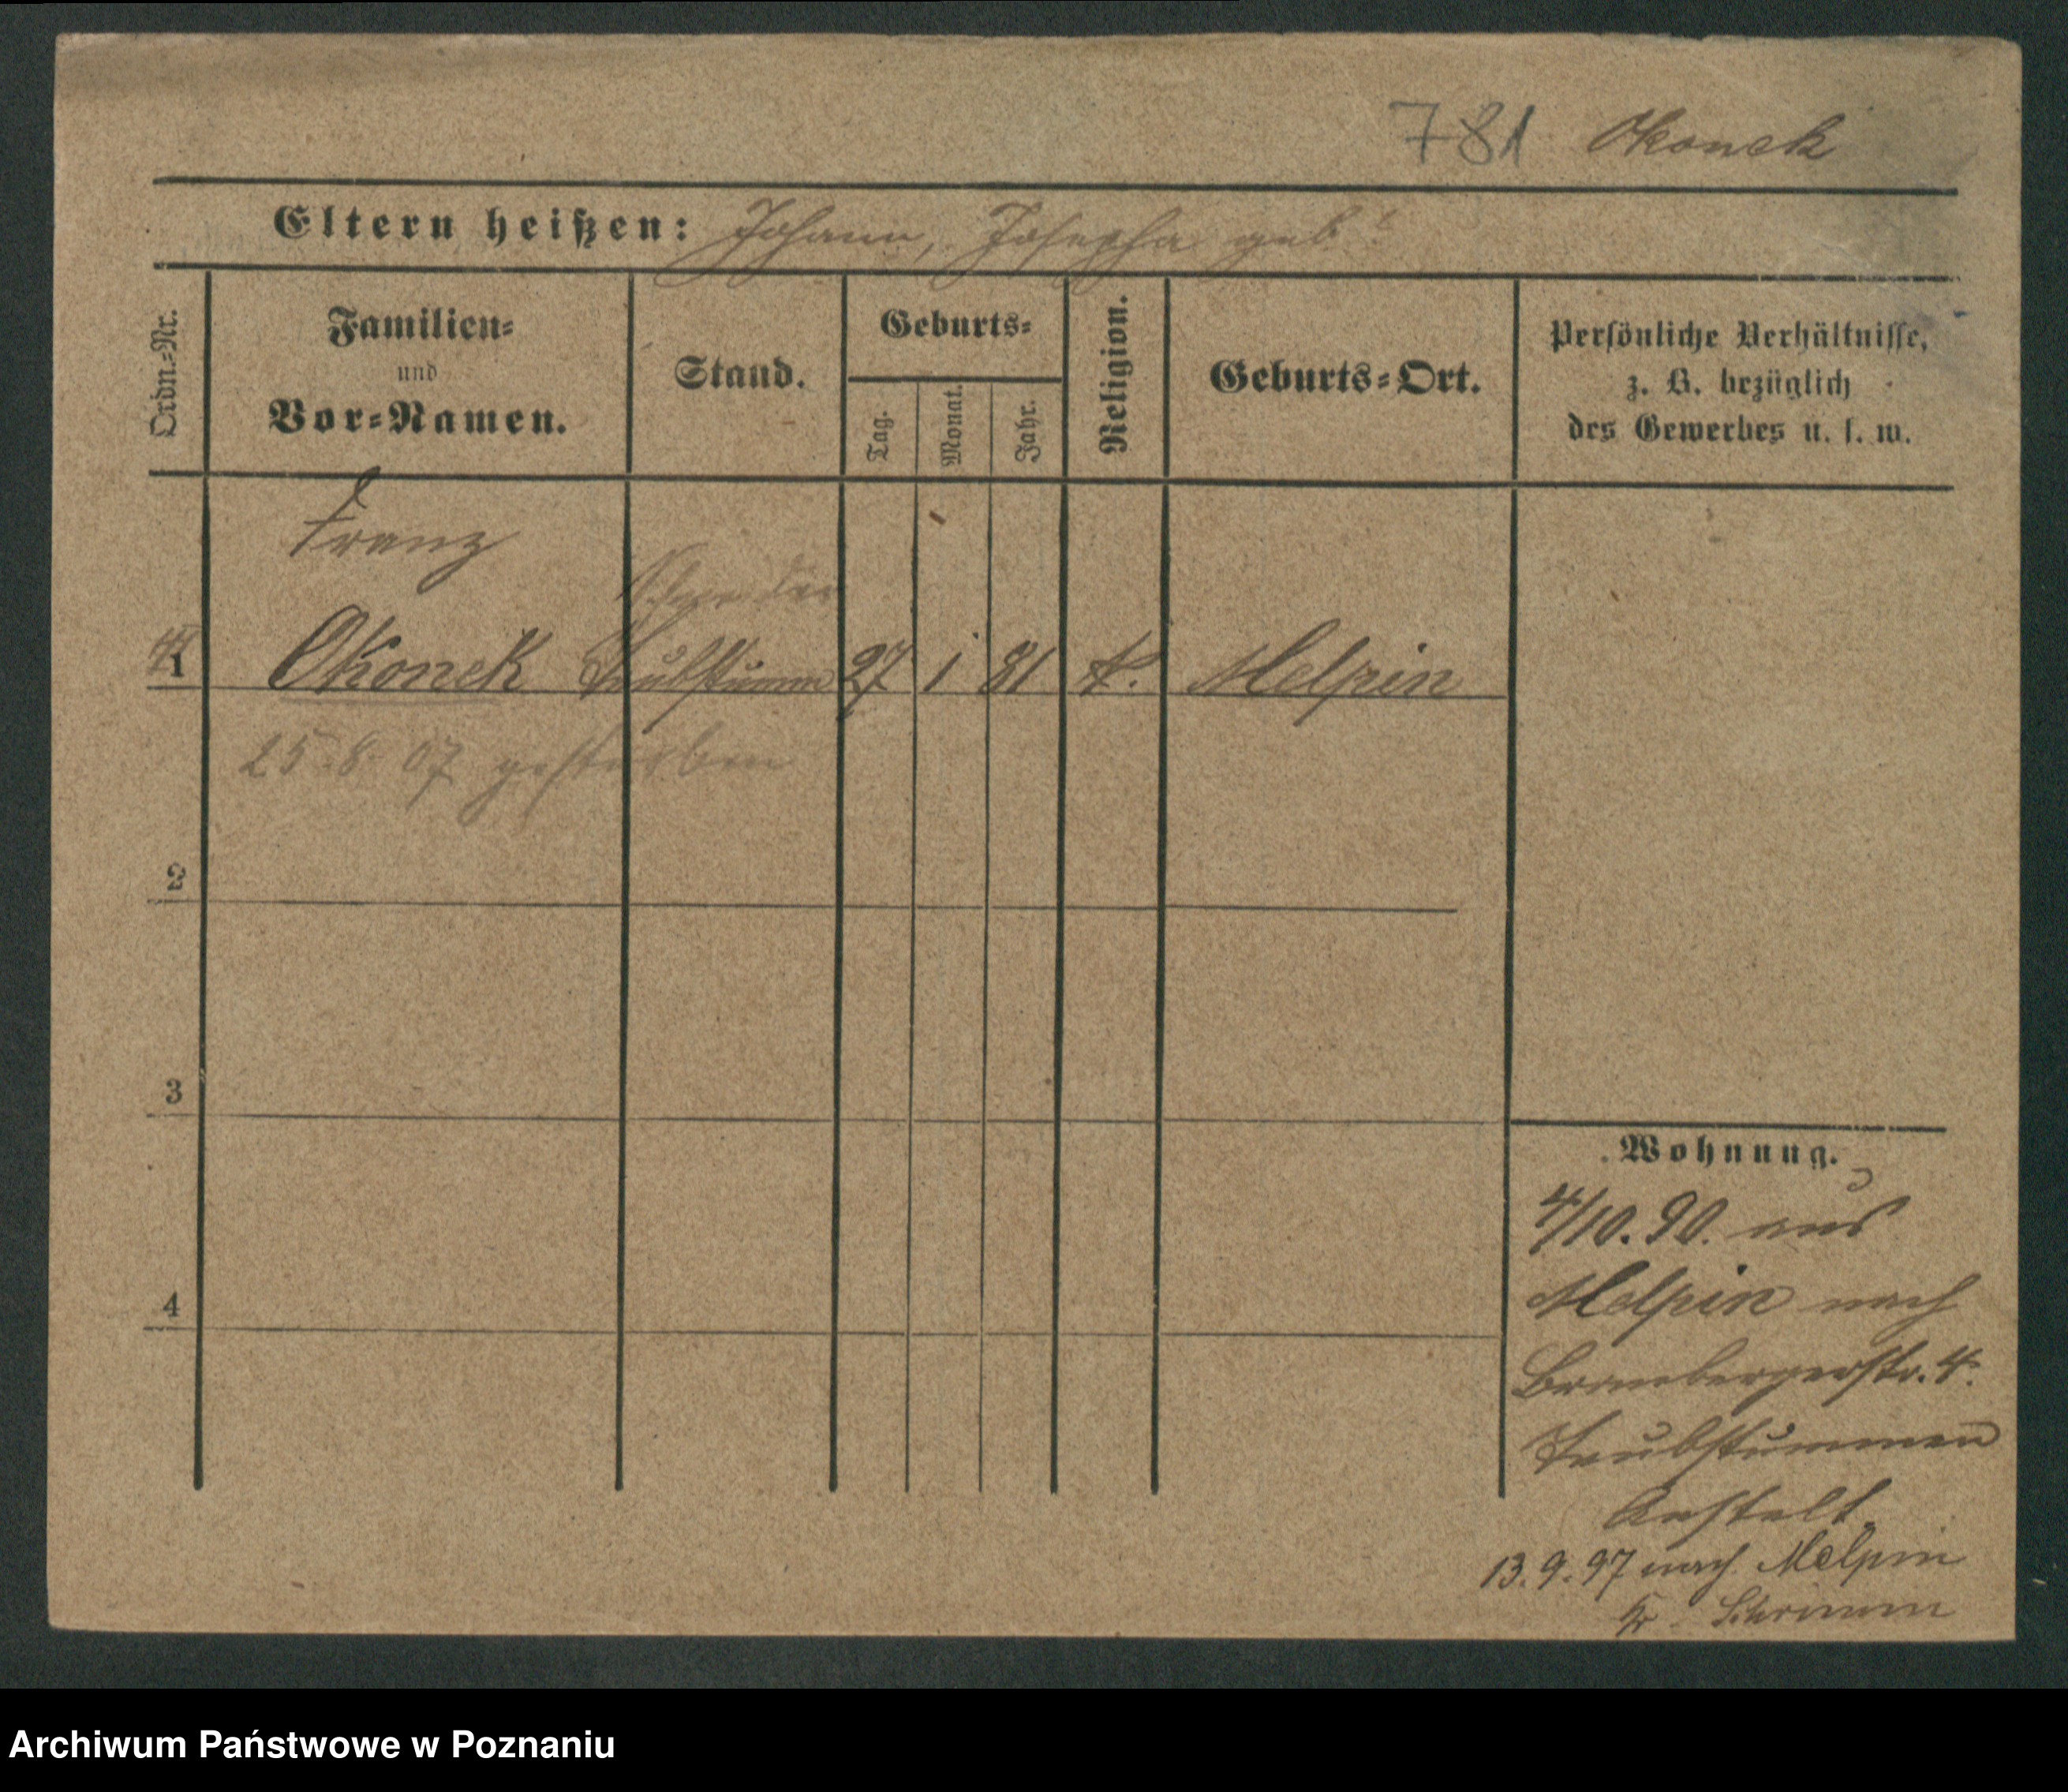 781 Okonek
Eltern heißen: Johann, Josepha geb ?
Ordn.=Nr.
Familien=
und
Vor=Namen.
Stand.
Geburts=
Tag.
Monat.
Jahr.
Religion.
Geburts=Ort.
Persönliche Verhältnisse,
z. B. bezüglich
des Gewerbes u. s. w.
Franz
1 Okonek Taubstumm 27 1 81 k. Melpin
25.8.07 gestorben
2
3
4
Wohnung.
4/10.90. aus
Melpin nach
Brombergerstr. 4.
Taubstummen
Anstalt.
13.9.97 nach Melpin
Kr. Schrimm
Archiwum Państwowe w Poznaniu